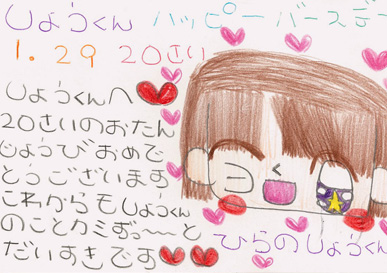 しょうくん ハッピーバースデー
1.29 20さい
しょうくんへ
20さいのおたん
じょうびおめで
とうございます
これからもしょうくん
のことカミずっ〜と
だいすきです
ひらのしょうくん